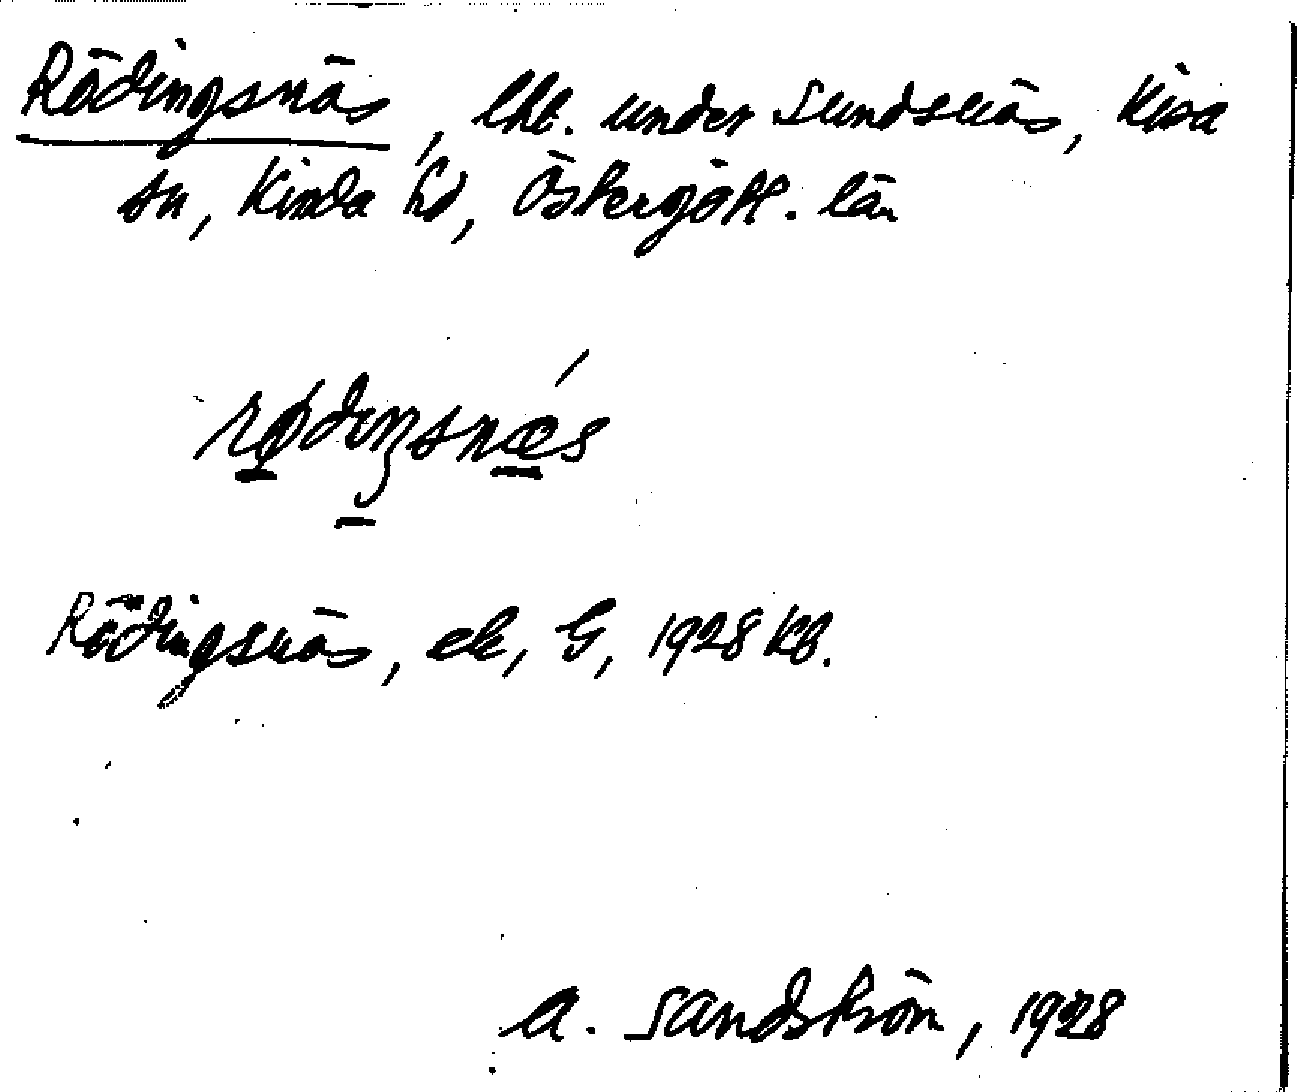 Rödingsnäs, lht. under Sundsnäs, Kisa
sn, Kinda hd, Östergötl. län
rødiŋsnǽs
Rödingsnäs, ek, G, 1928 Kb.
A. Sandström, 1928